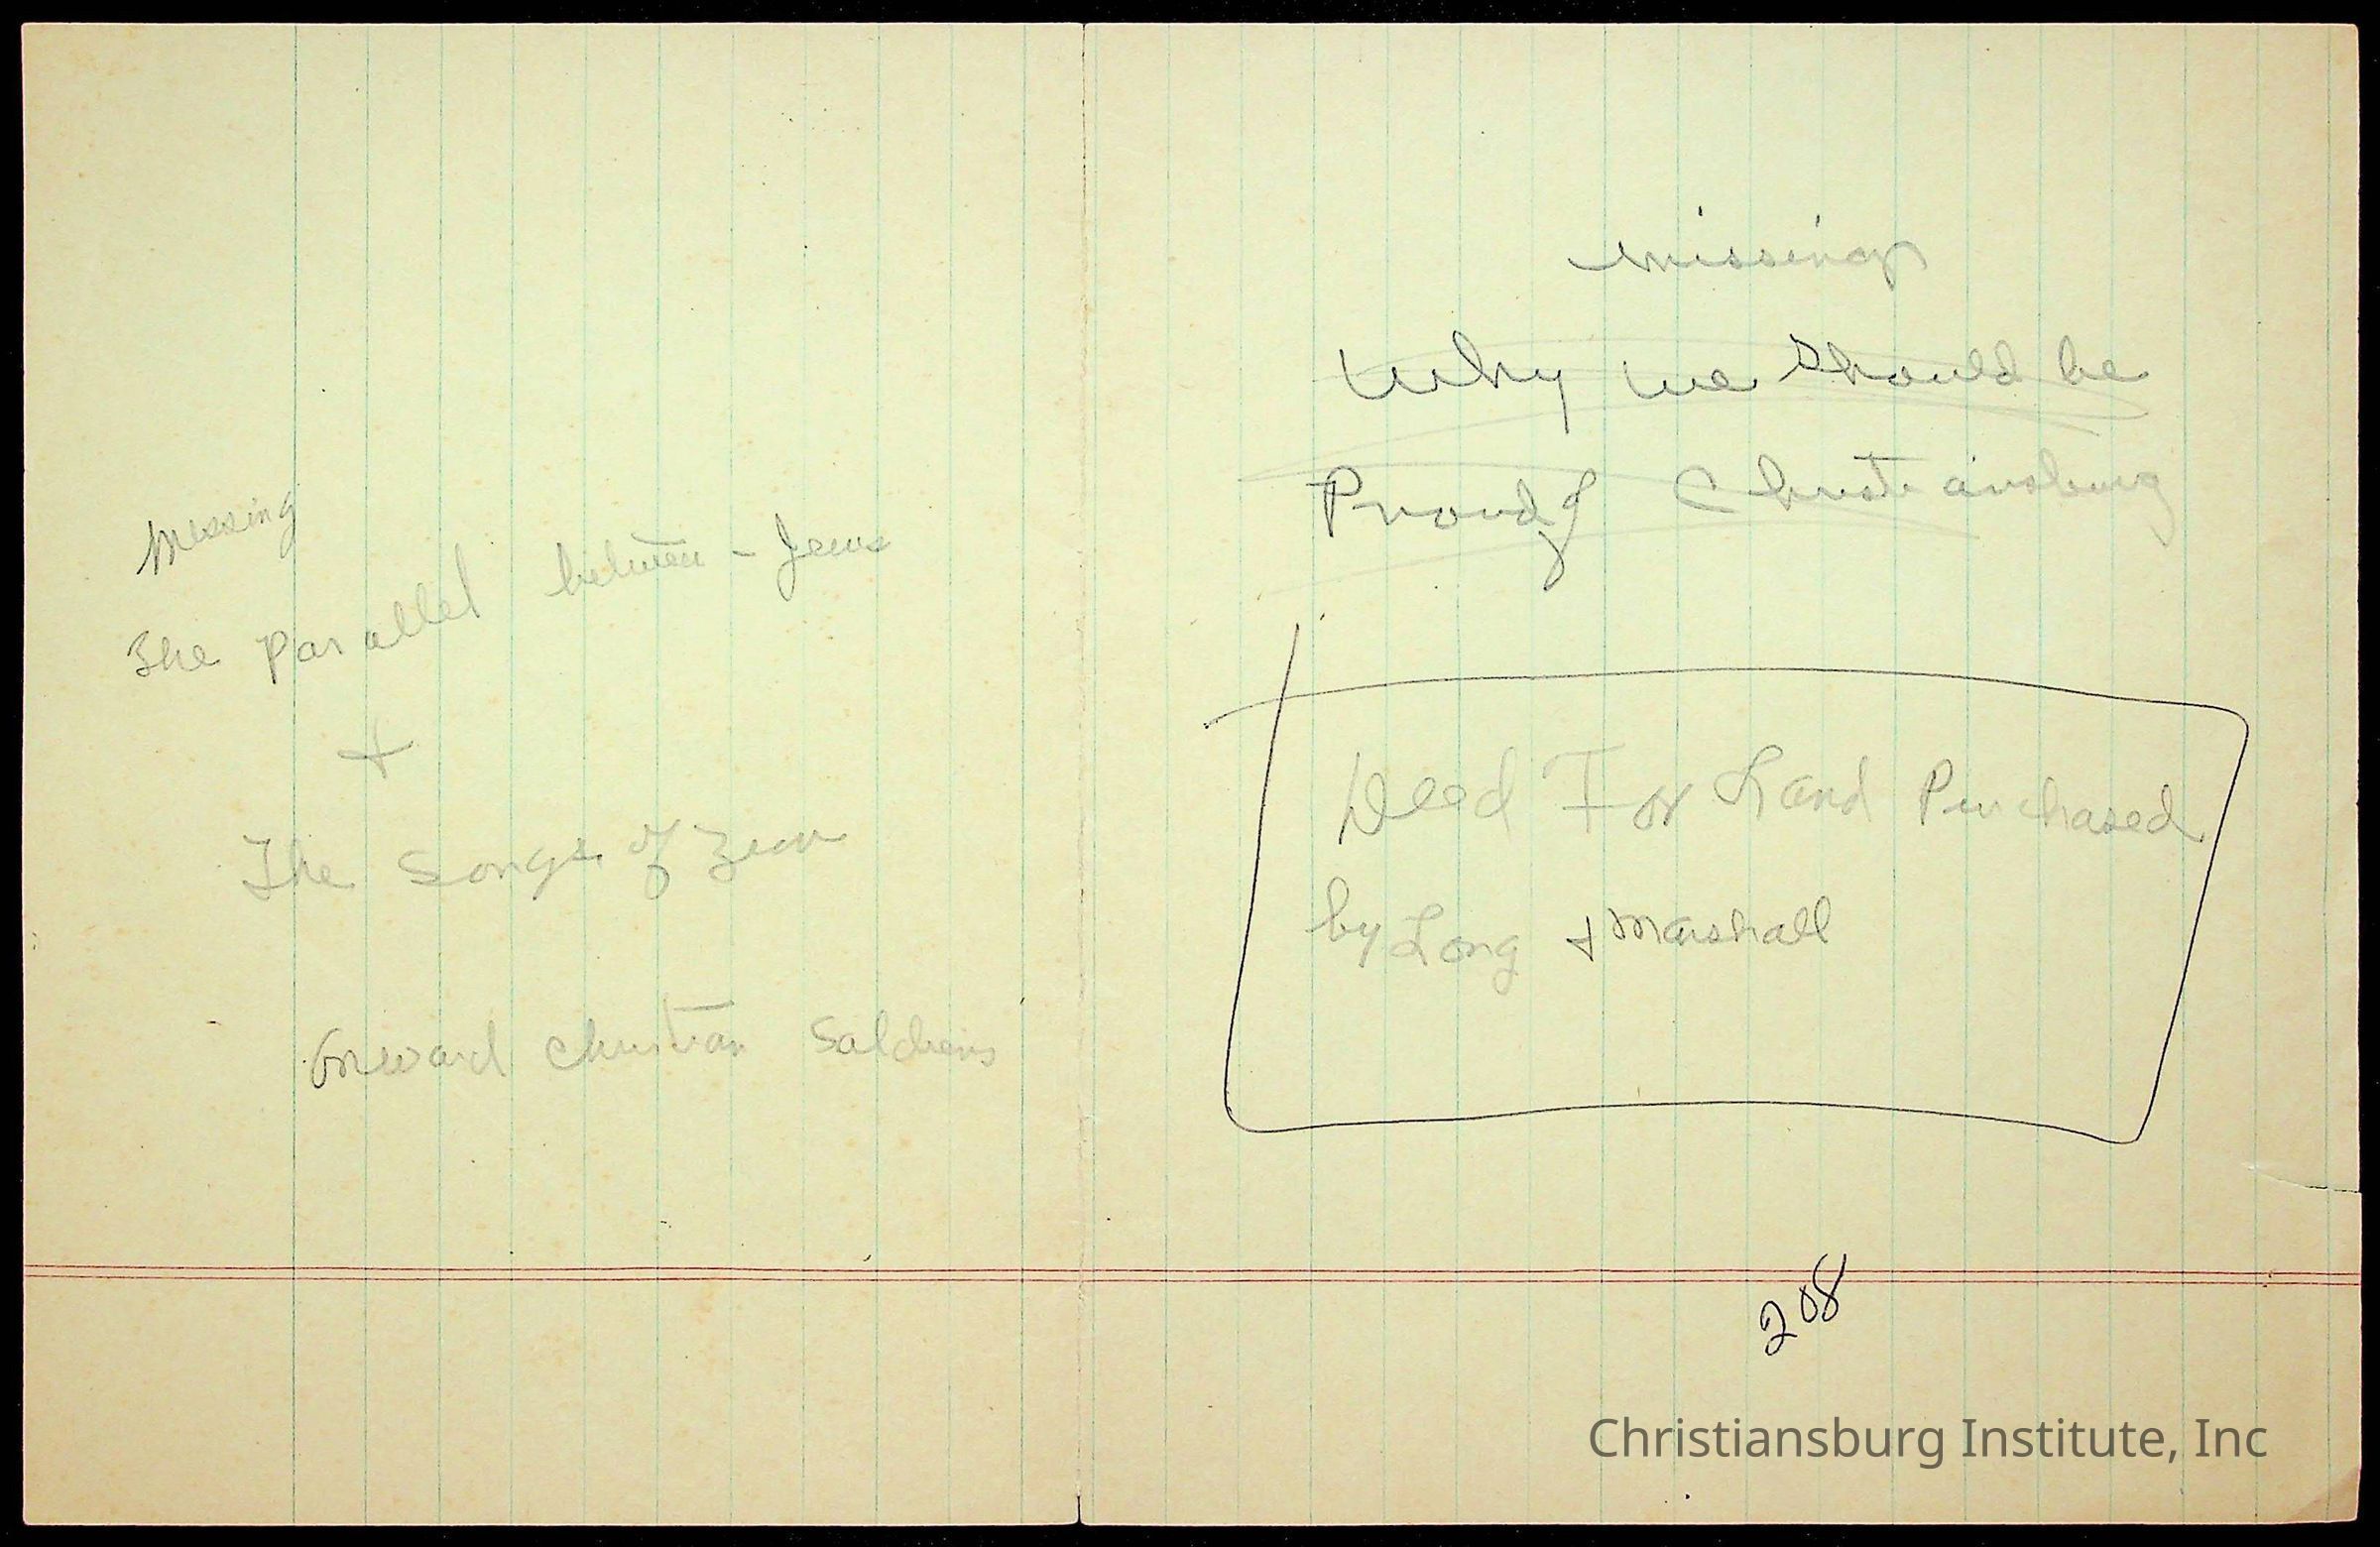 Missing
The Parallel between - Jews
+
The Songs of Zion
Onward Christian Soldiers
missing
Why we should be
Proud of Christiansburg
Deed For Land Purchased
by Long + Marshall
208
Christiansburg Institute, Inc